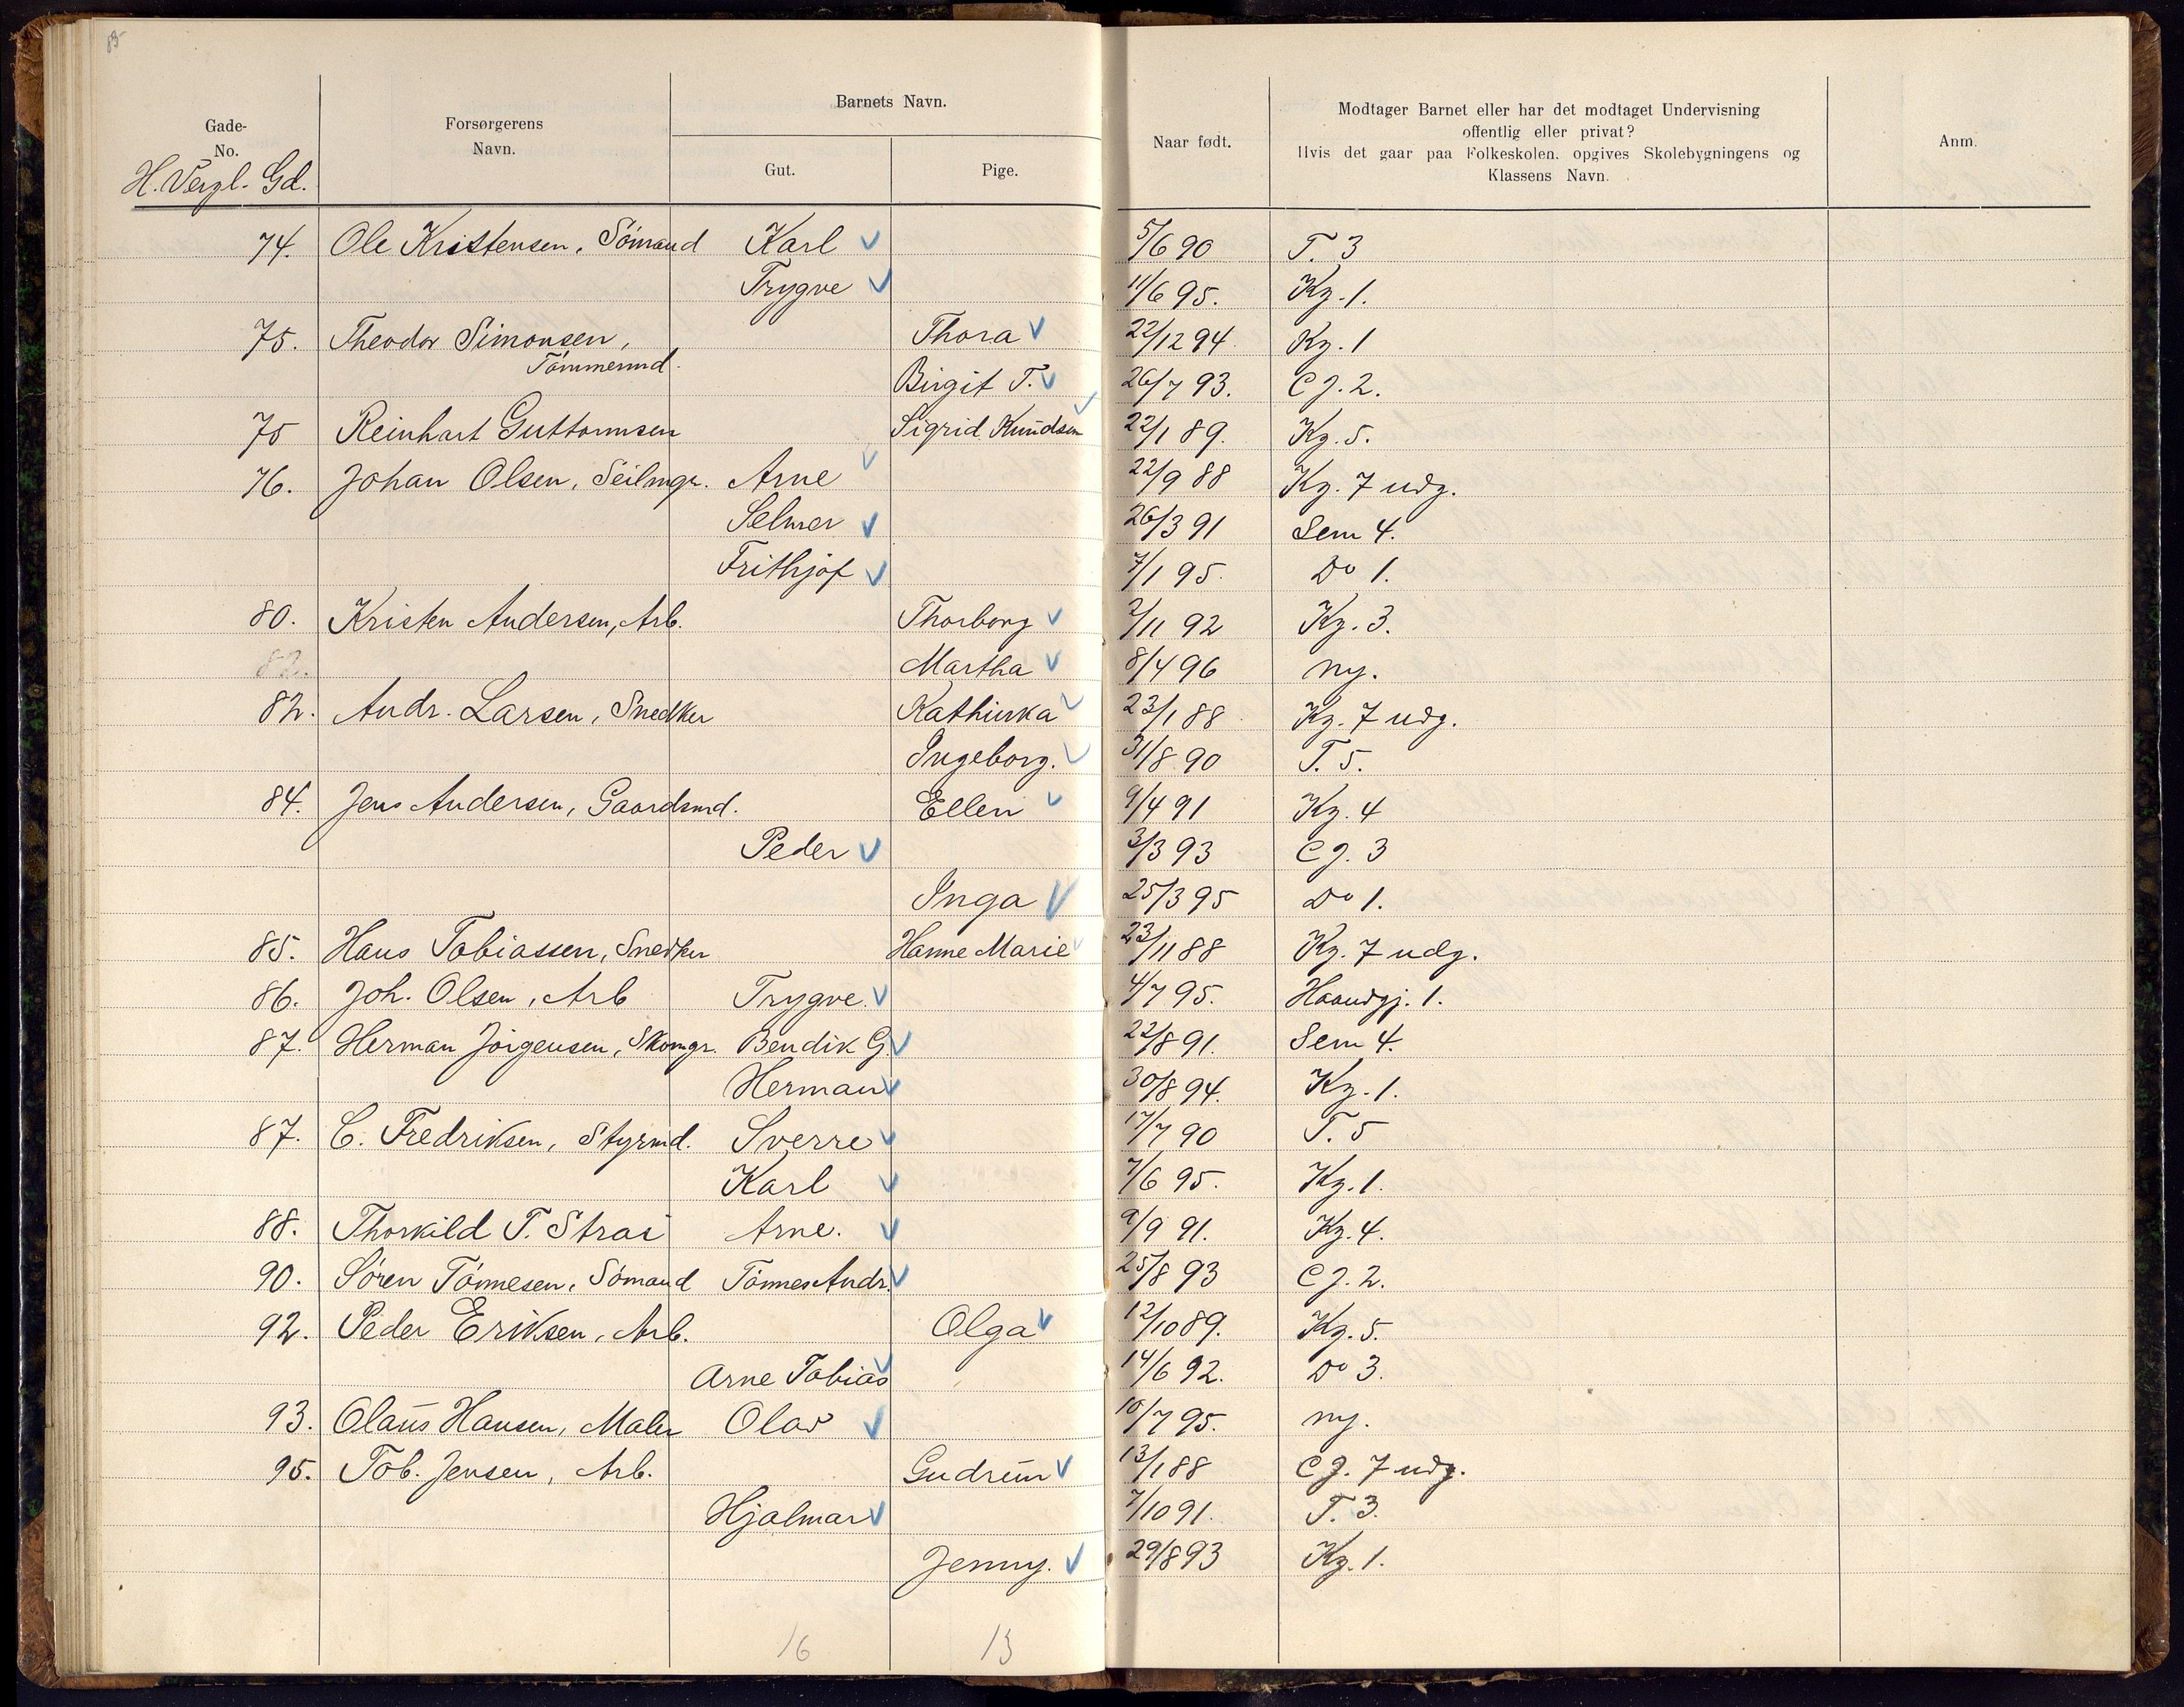 85
Gade-
No.
Forsørgerens
Navn.
Barnets Navn.
Gut.
Pige.
Naar født.
Modtager Barnet eller har det modtaget Undervisning
offentlig eller privat?
Hvis det gaar paa Folkeskolen. opgives Skolebygningens og
Klassens Navn.
Anm.
H. Vergl. Gd.
74. Ole Kristensen, Sömand Karl 5/6 90 T. 3
Trygve 11/6 95. Kg. 1.
75. Theodor Simonsen, Thora 22/12 94. Kg. 1
Tömmermd. Birgit T. 26/7 93. C J. 2.
75 Reinhart Guttormsen Sigrid Knudsen 22/1 89. Kg. 5.
76. Johan Olsen, Seilmgr. Arne 22/9 88 Kg. 7 udg.
Selmer 26/3 91 Sem 4.
Frithjof 7/1 95. Do 1.
80. Kristen Andersen, Arb. Thorborg 2/11 92 Kg. 3.
82. Martha 8/4 96 ny.
82. Andr. Larsen, Snedker Kathinka 23/1 88 Kg. 7 udg.
Ingeborg. 31/8 90 T. 5.
84. Jens Andersen, Gaardsmd. Ellen 9/4 91 Kg. 4
Peder 3/3 93 C J. 3
Inga 25/3 95 Do 1.
85. Hans Tobiassen, Snedker Hanne Marie 23/11 88 Kg. 7 udg.
86. Joh. Olsen, Arb Trygve. 4/7 95. Haandgj. 1.
87. Herman Jörgensen, Skomgr. Bendik G. 22/8 91. Sem 4.
Herman 30/8 94. Kg. 1.
87. C. Fredriksen, Styrmd. Sverre 17/7 90 T. 5
Karl 7/6 95. Kg. 1.
88. Thorkild T. Strai Arne. 9/9 91. Kg. 4.
90. Sören Tönnesen, Sömand Tönnes Andr. 25/8 93 C J. 2.
92. Peder Eriksen, Arb. Olga 12/10 89. Kg. 5.
Arne Tobias 14/6 92. Do 3.
93. Olaus Hansen, Maler Olav 10/7 95. ny.
95. Tob. Jensen, Arb. Gudrun 13/1 88 C J. 7 udg.
Hjalmar 7/10 91. T. 3.
Jenny. 29/8 93 Kg. 1.
16 13